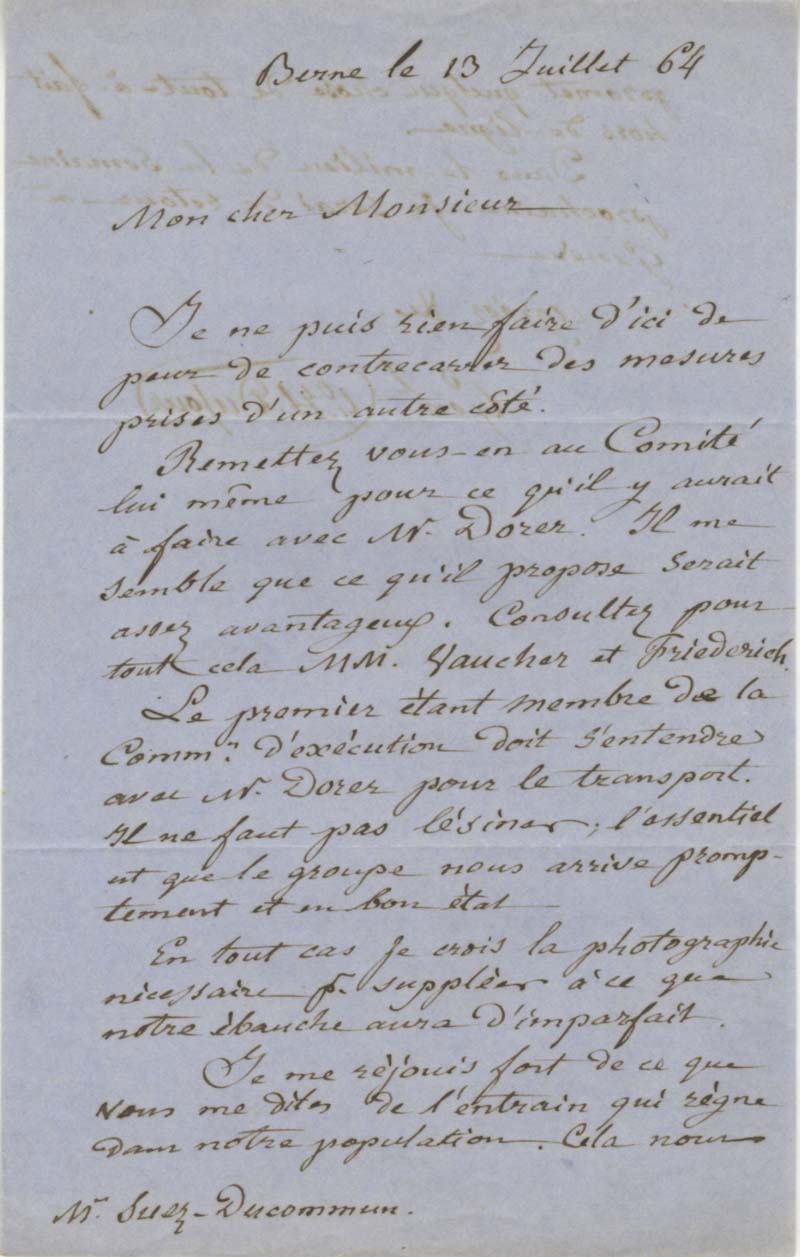 Berne le 13 Juillet 64
Mon cher Monsieur
Je ne puis rien faire d'ici de
peur de contrecarrer des mesures
prises d'un autre côté.
Remettez vous-en au Comité
lui même pour ce qu'il y aurait
à faire avec Mr. Dorer. Il me
semble que ce qu'il propose serait
assez avantageux. Consultez pour
tout cela MM. Vaucher et Friederich.
Le premier étant membre de la
Comm.n d'exécution doit s'entendre
avec Mr. Dorer pour le transport.
Il ne faut pas lésiner; l'essentiel
est que le groupe nous arrive promp-
tement et en bon état
En tout cas je crois la photographie
nécessaire pr. suppléer à ce que
notre ébauche aura d'imparfait.
Je me réjouis fort de ce que
vous me dites de l'entrain qui règne
dans notre population. Cela nous
Mr. Suez-Ducommun.